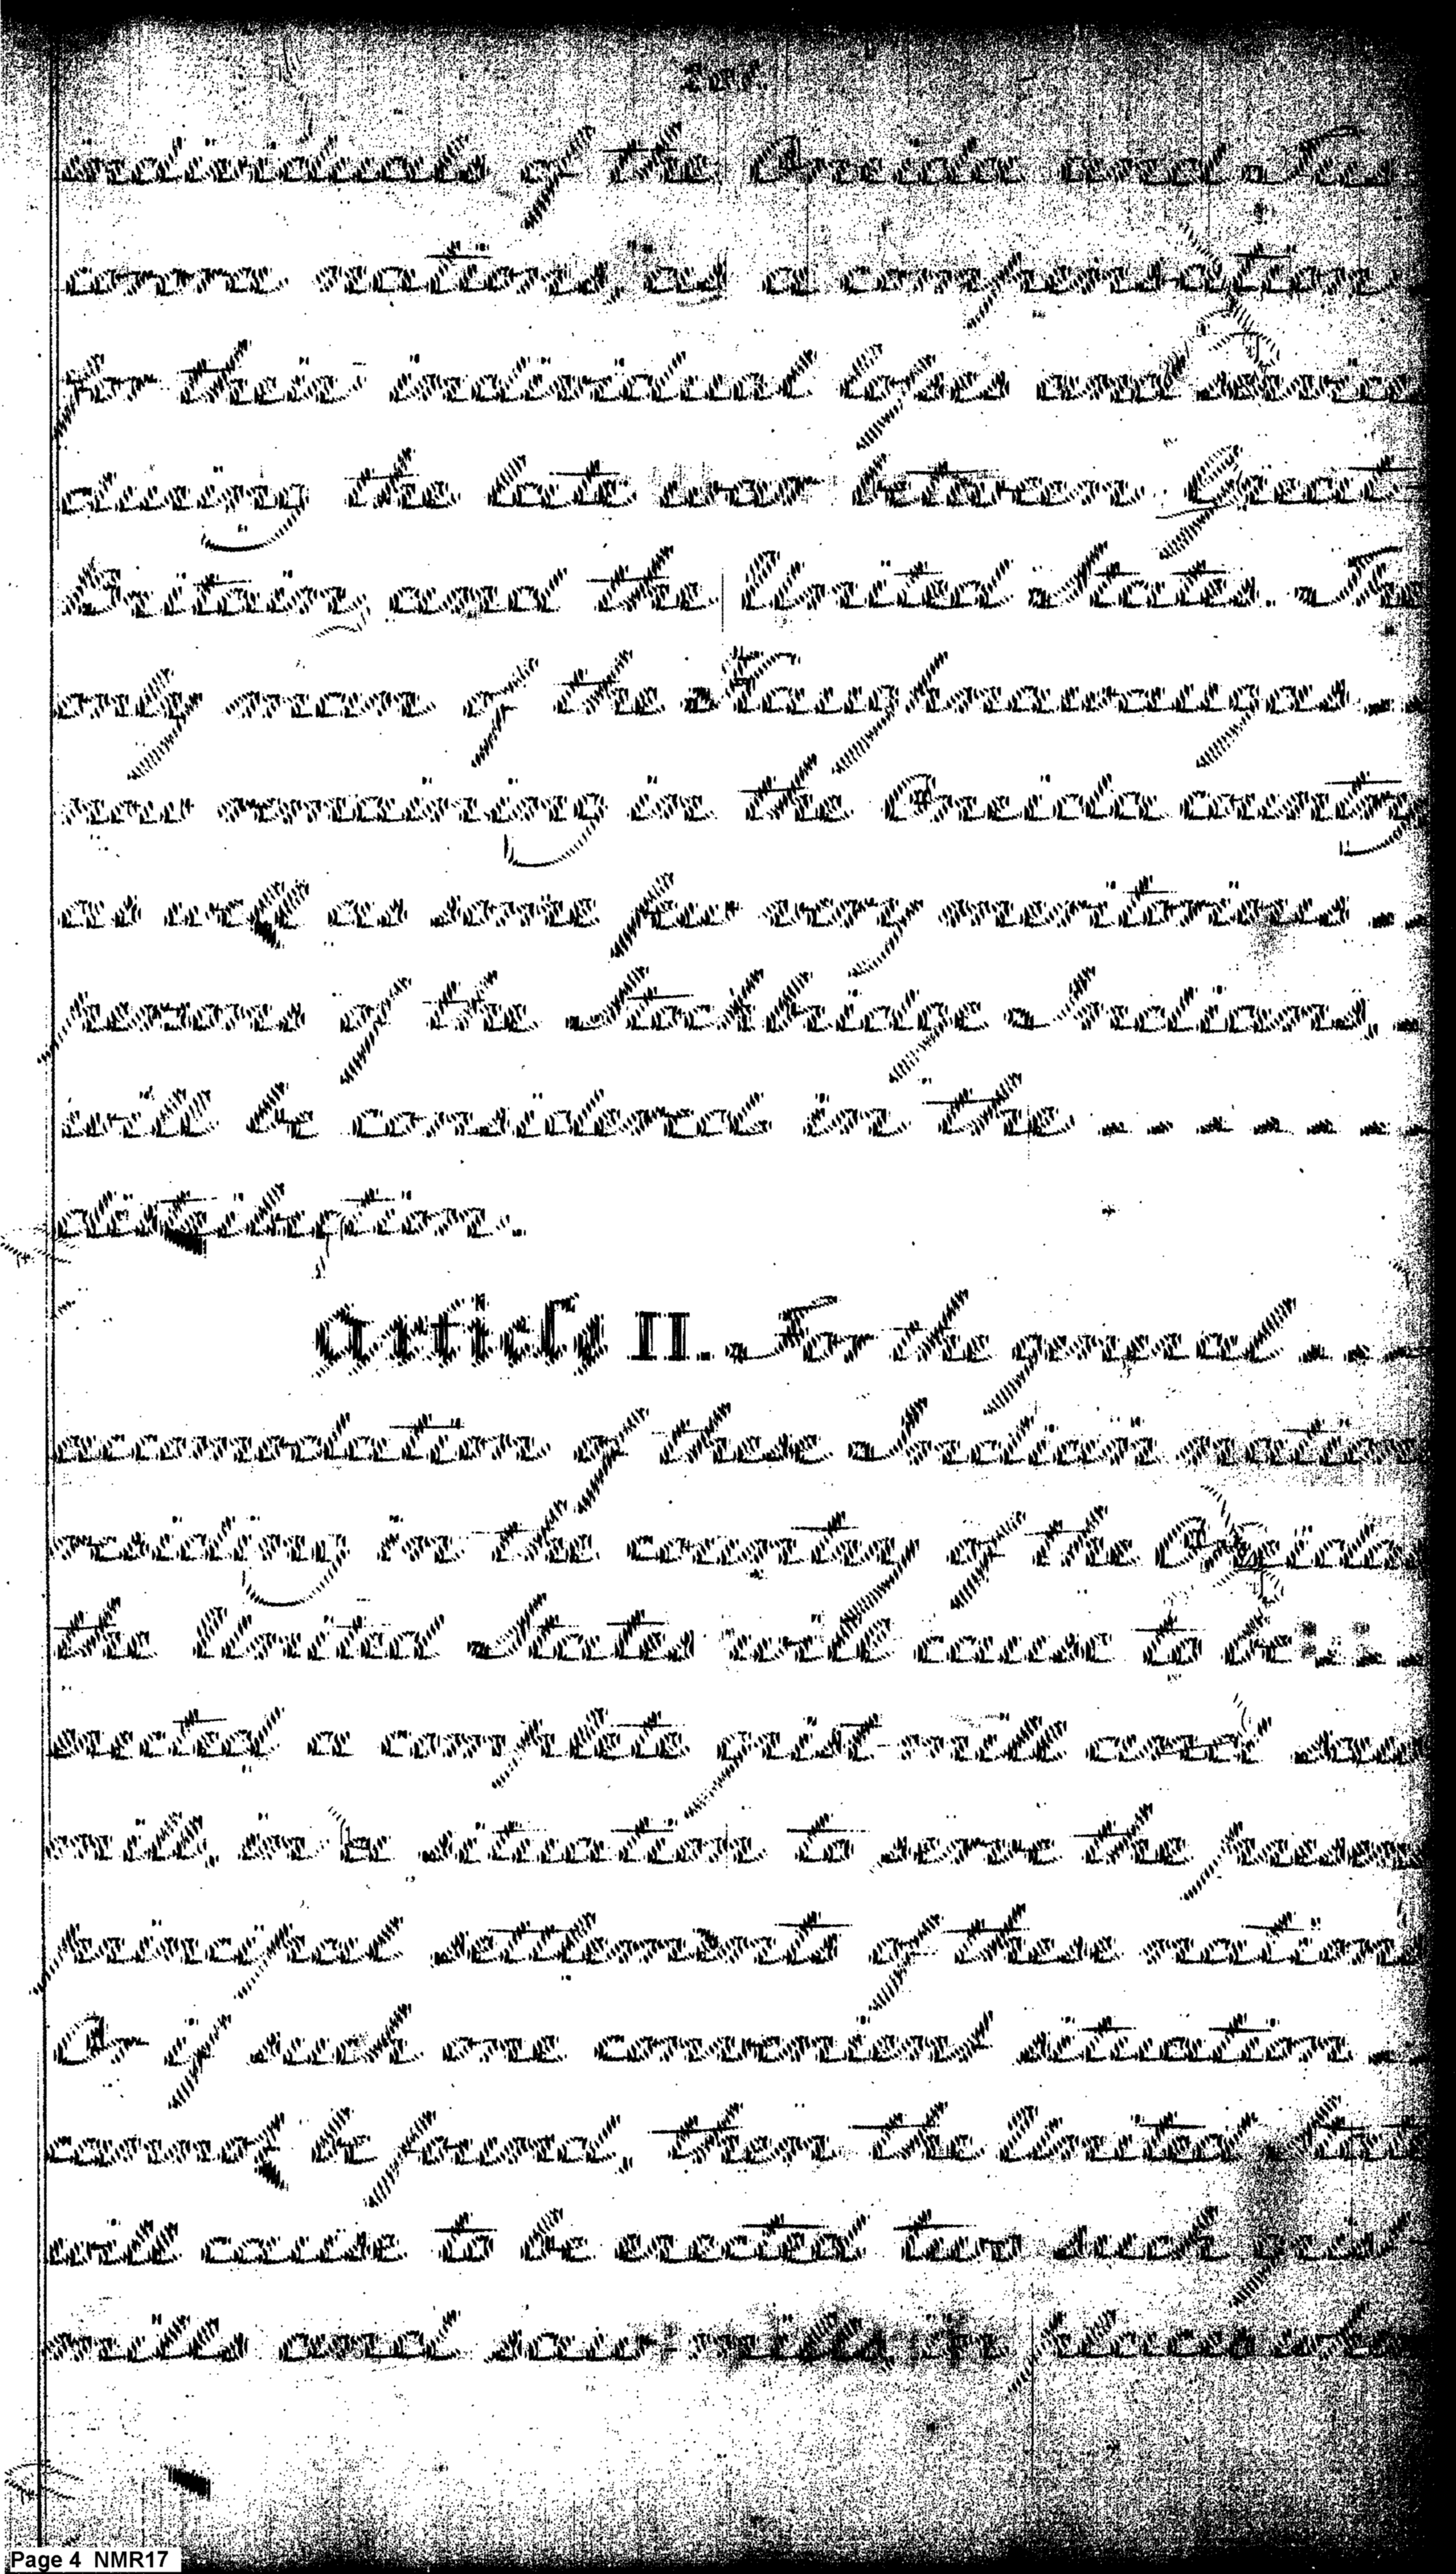 Four.
individuals of the Oneida and Tus
carora nations, as a compensation
for their individual losses and services
during the late war between Great
Britain and the United States. The
only man of the Kaughnawaugas
now remaining in the Oneida country
as well as some few very meritorious
persons of the Stockbridge Indians,
will be considered in the
distribution.
Article II. For the general
accomodation of these Indian nations
residing in the country of the Oneidas
the United States will cause to be
erected a complete grist-mill and saw
mill, in a situation to serve the present
principal settlements of these nations
Or if such one convenient situation
cannot be found, then the United States
will cause to be erected two such grist
mills and saw-mills, in places where
Page 4 NMR17